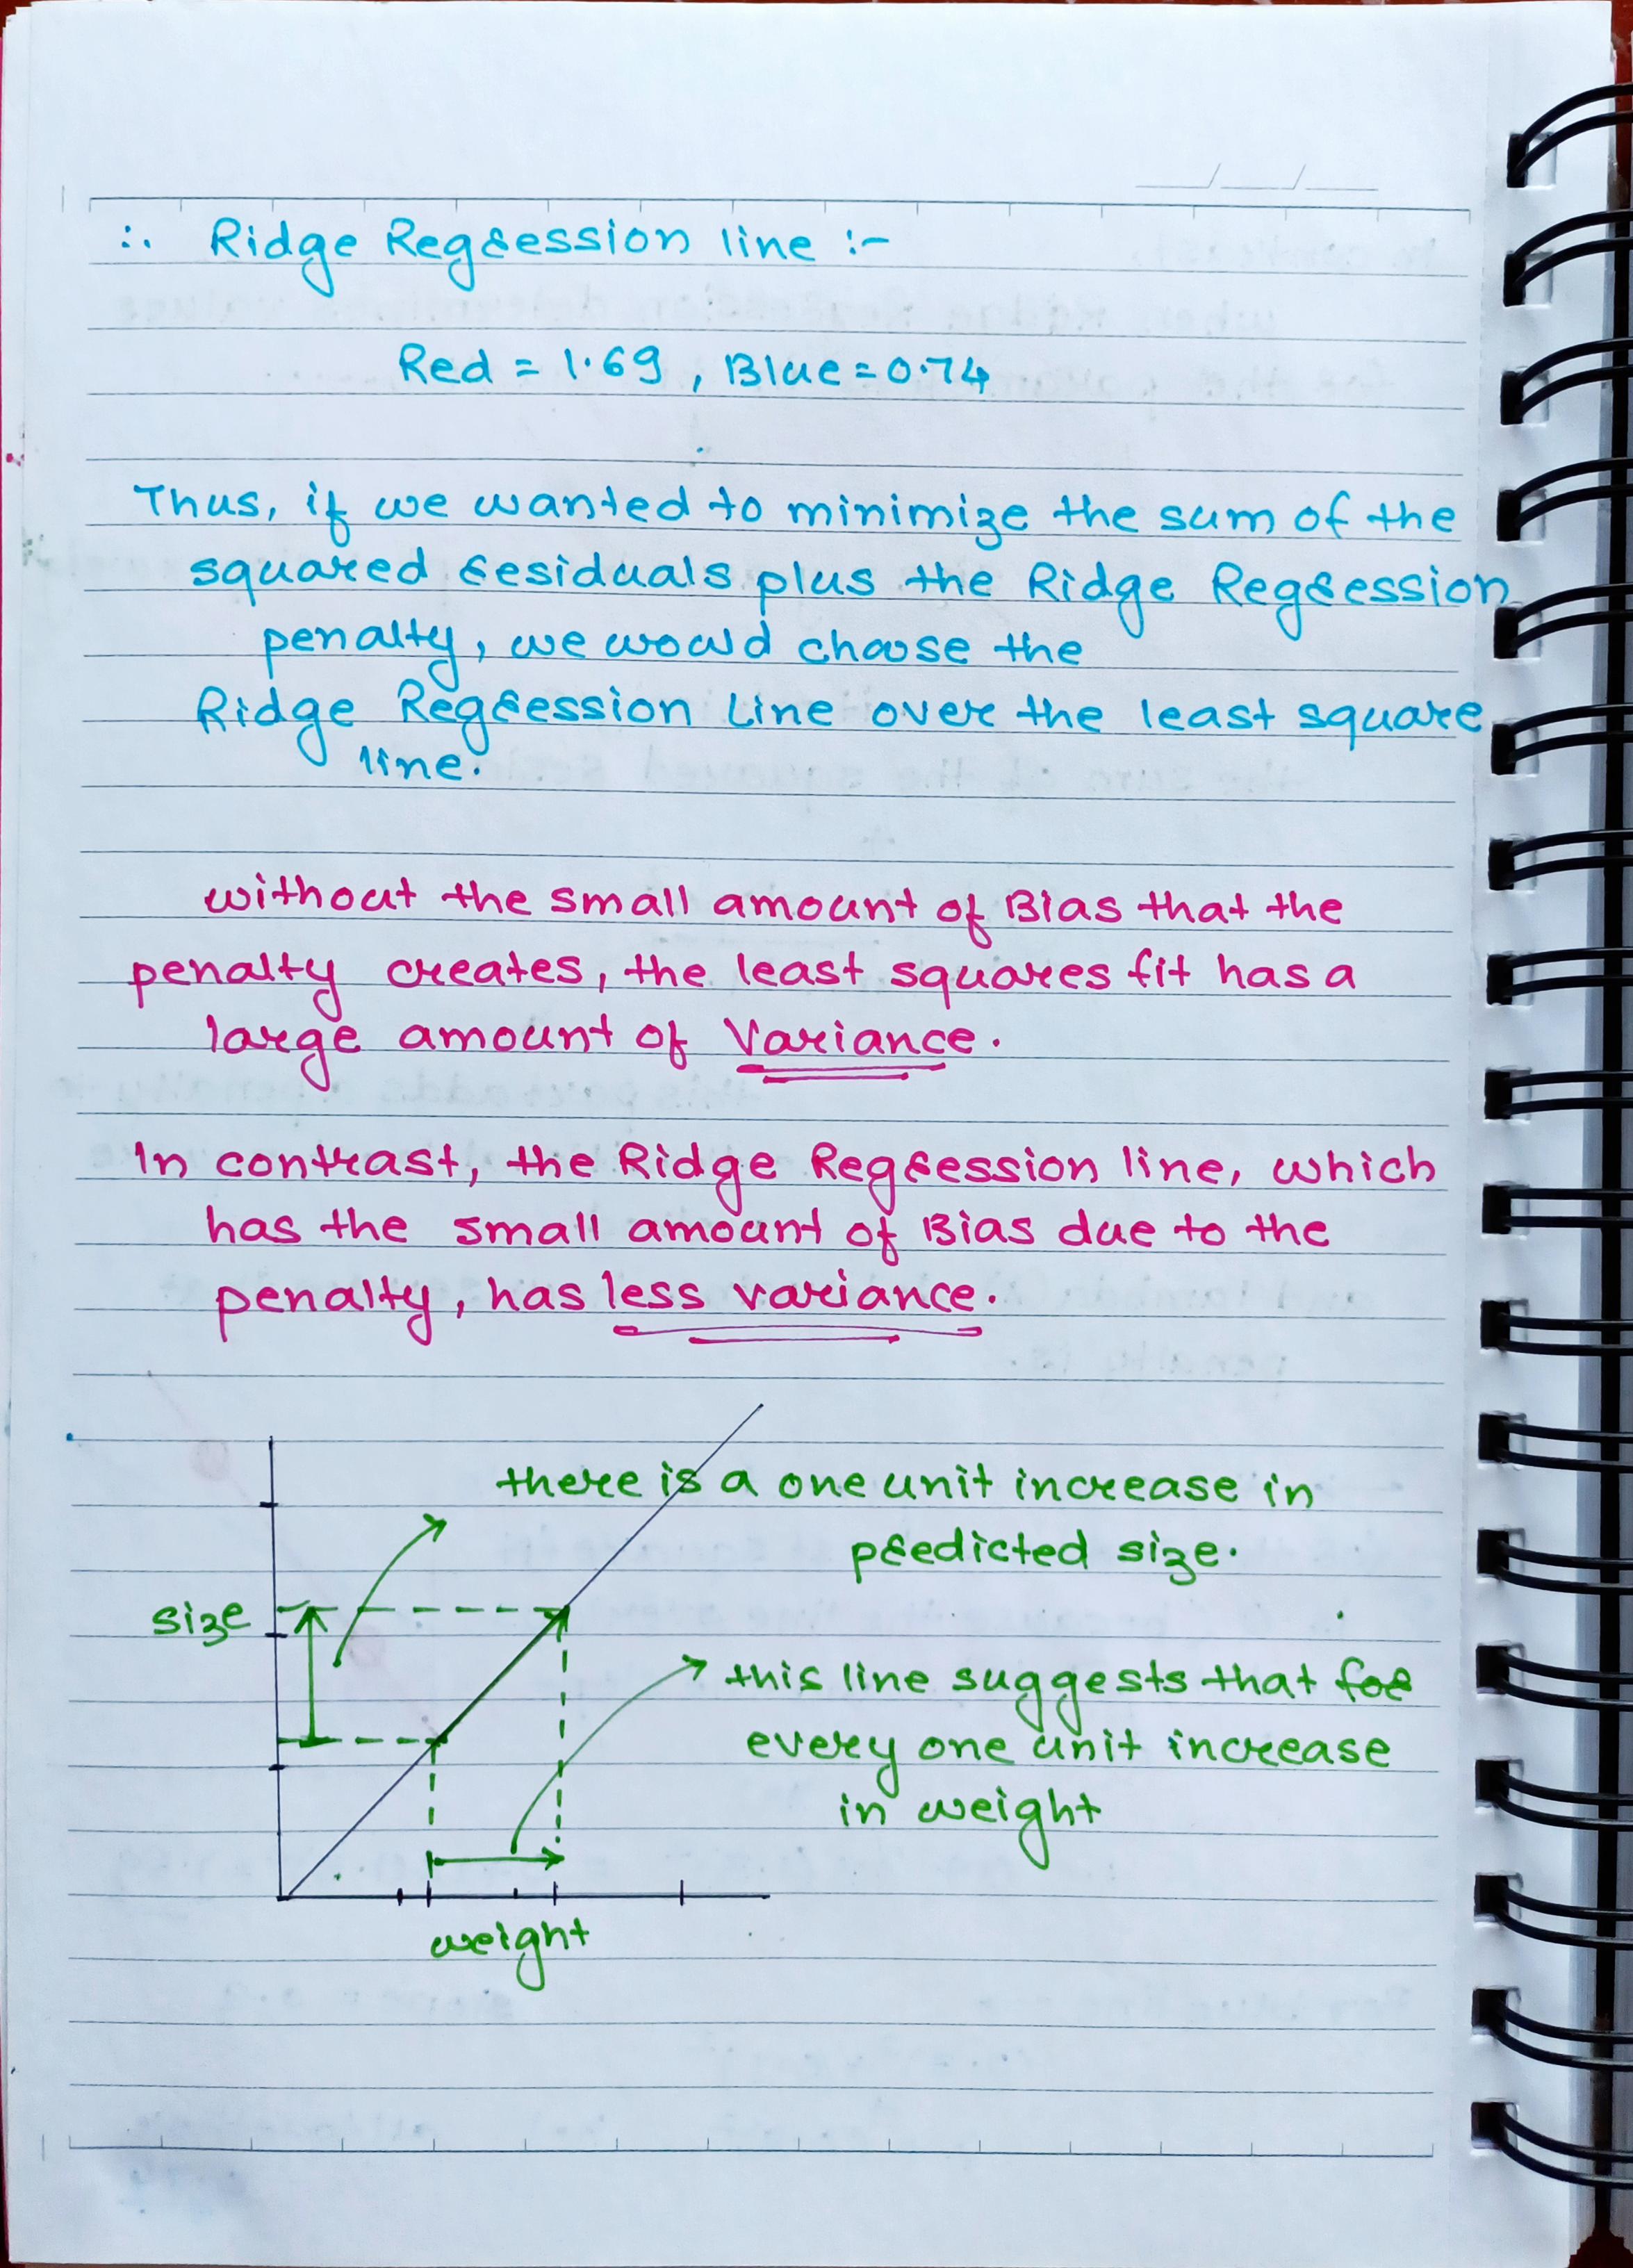 ∴ Ridge Regression line :-
Red = 1.69 , Blue = 0.74
Thus, if we wanted to minimize the sum of the
squared residuals plus the Ridge Regression
penalty, we would choose the
Ridge Regression Line over the least square
line.
without the small amount of Bias that the
penalty creates, the least squares fit has a
large amount of Variance.
In contrast, the Ridge Regression line, which
has the small amount of Bias due to the
penalty, has less variance.
there is a one unit increase in
predicted size.
size
this line suggests that for
every one unit increase
in weight
weight